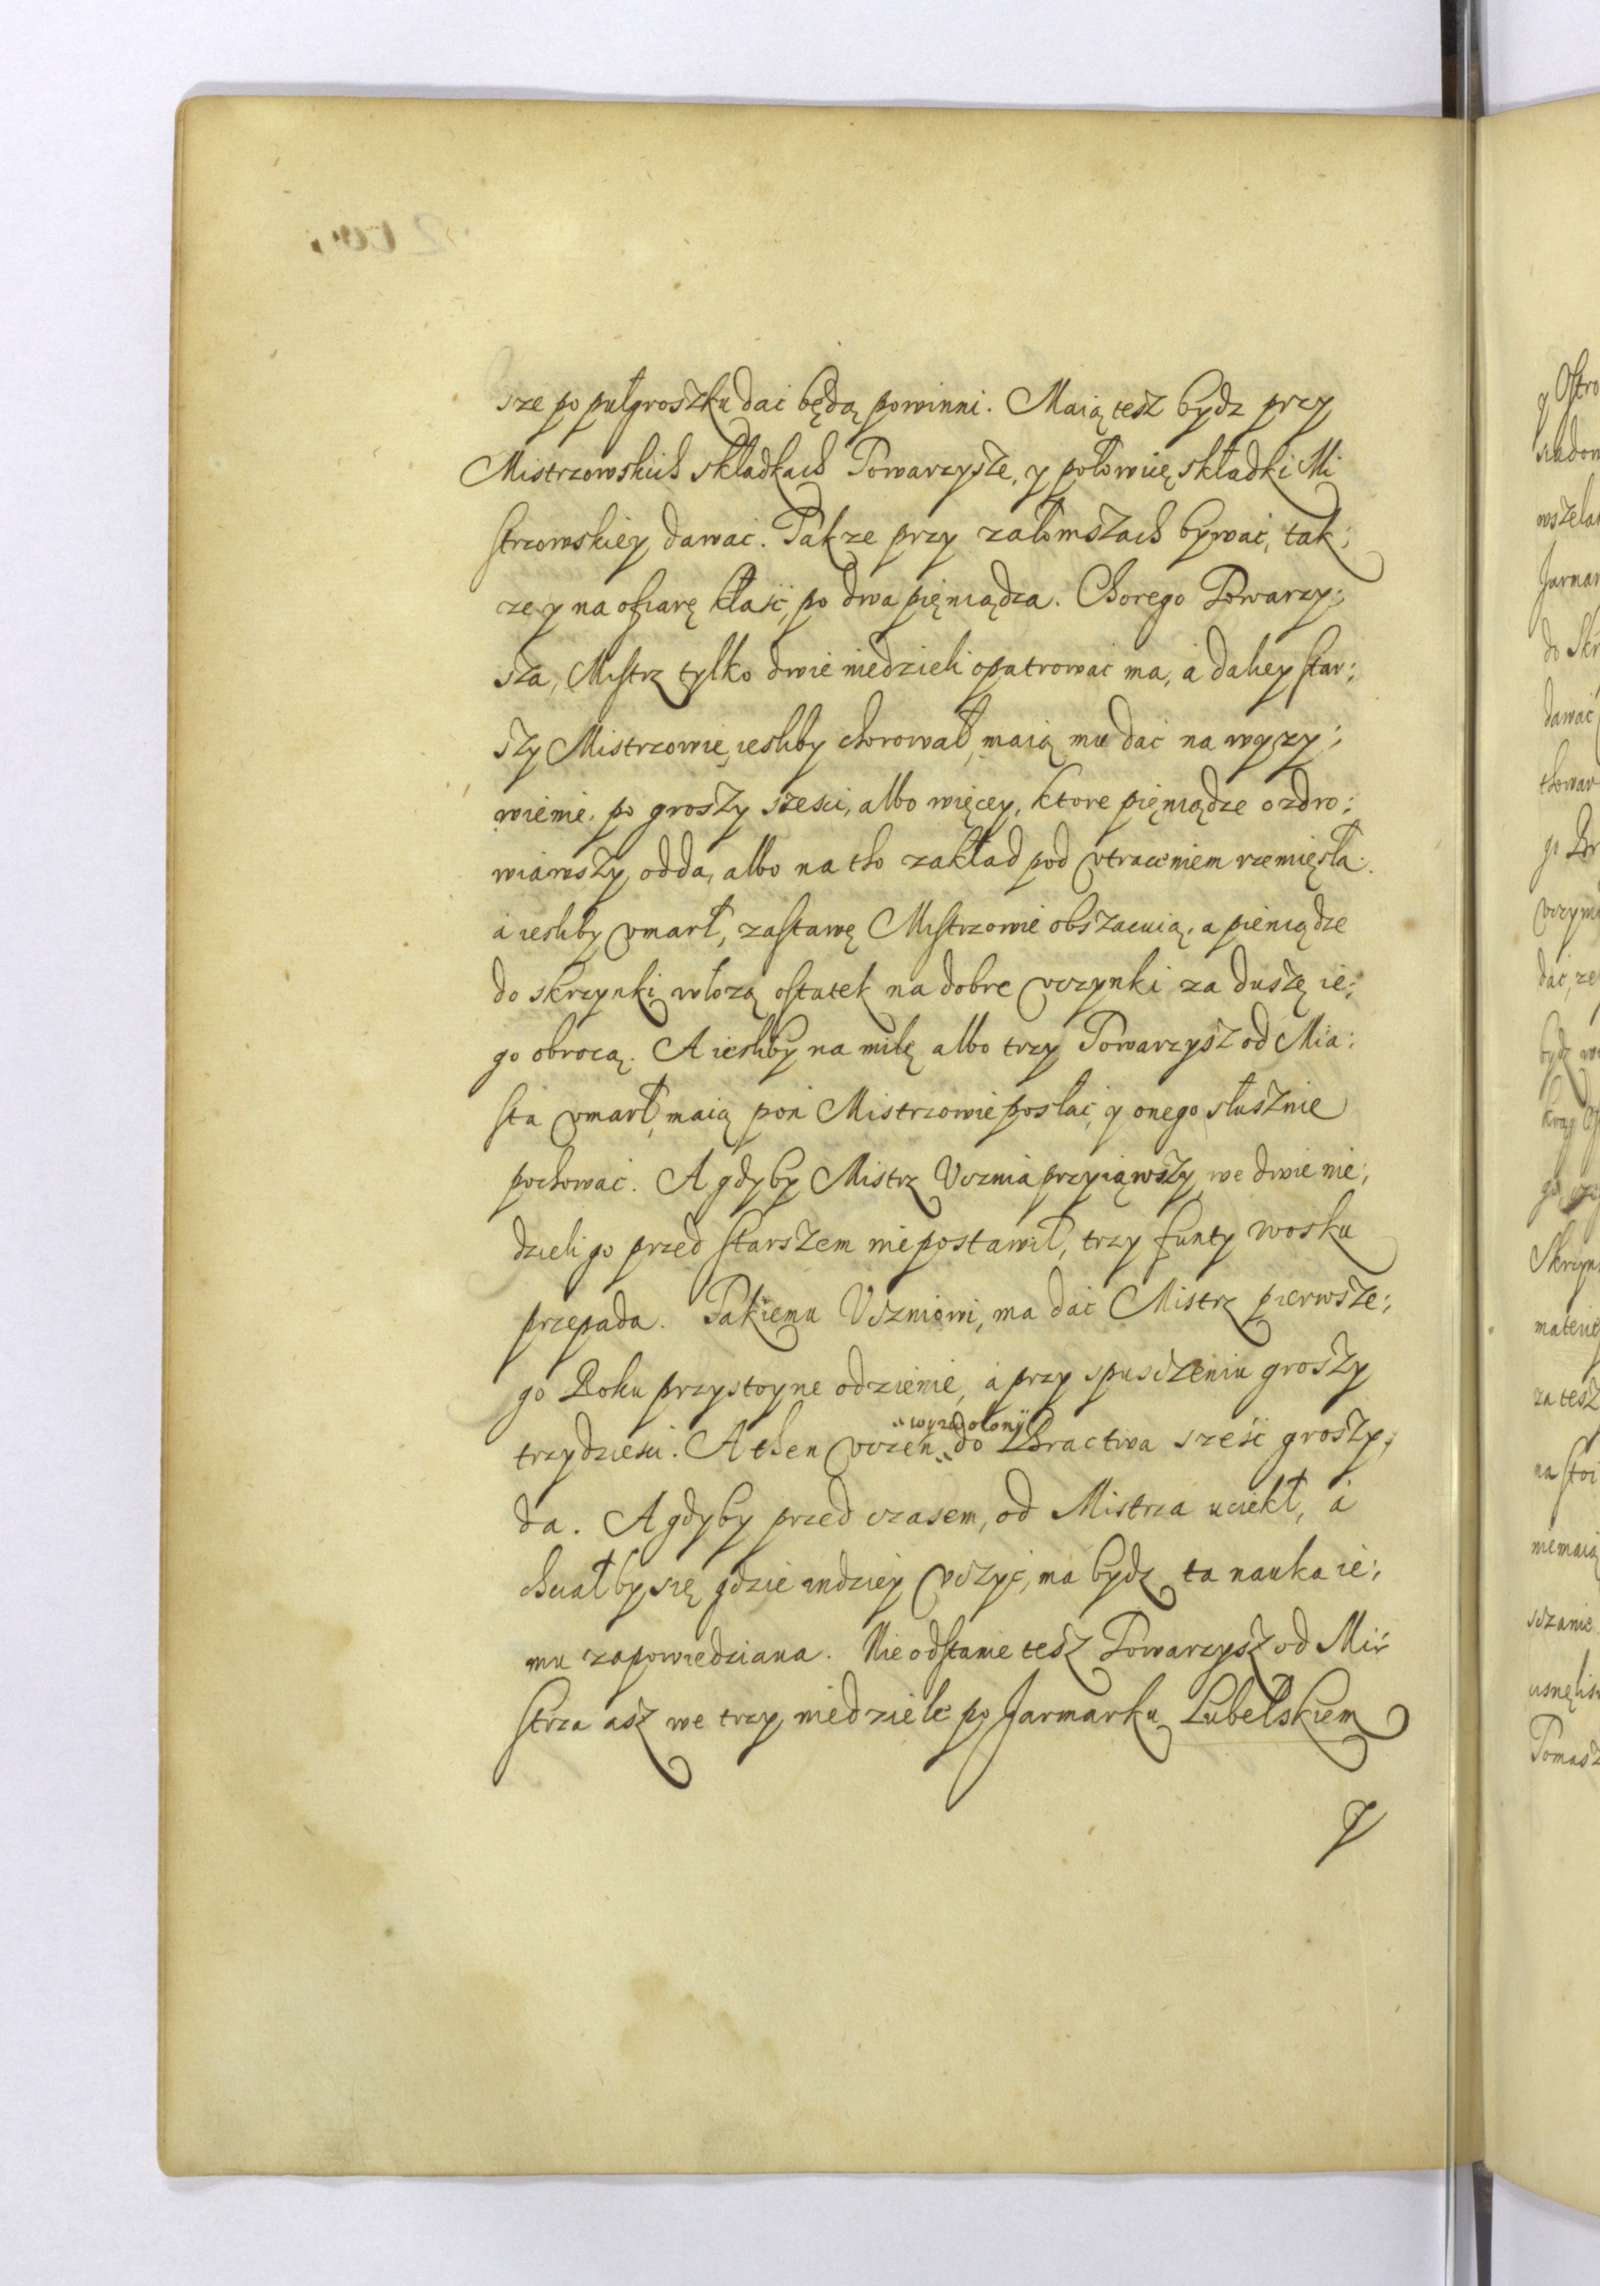 sze po pułgroszku dać będą powinni. Maią tesz bydz przy
Mistrzowskich składkach Towarzysze, y połowicę składki Mi
strzowskiey dawać. Takze przy załomszach bywać, tak:
ze y na ofiarę kłaść, po dwa pięniądza. Chorego Towarzy:
sza, Mistrz tylko dwie niedzieli opatrować ma, á daliey star:
szy Mistrzowie, iesliby chorował, maią mu dać na wyzy:
wienie, po groszy sześci, albo więcey, ktore pięniądze ozdro:
wiawszy, odda, albo na tho zakład pod vtraceniem rzemięsła.
á iesliby vmarł, zastawę Mistrzowie obszacuią, a pieniądze
do skrzynki włozą ostatek na dobre vczynki za duszę ie:
go obrocą. A iesliby na milę albo trzy Towarzysz od Mia:
sta vmarł, maią poń Mistrzowie posłać, y onego słusznie
pochować. A gdyby Mistrz Vcznia przyiąwszy, we dwie nie:
dzieli go przed starszem niepostawił, trzy funty wosku
przepada. Takiemu Vczniowi, ma dać Mistrz pierwsze:
go Roku przystoyne odzienie, á przy spusczeniu groszy
trzydzieści. A then vczeń do Bractwa sześć groszy,
wyzwolony
da. A gdyby przed czasem, od Mistrza uciekł, á
chciałby się gdzie indziey vczyć, ma bydz ta nauka ie:
mu zapowiedziana. Nieodstanie tesz Towarzysz od Mi
strza asz we trzy niedziele po Jarmarku Lubelskiem
y